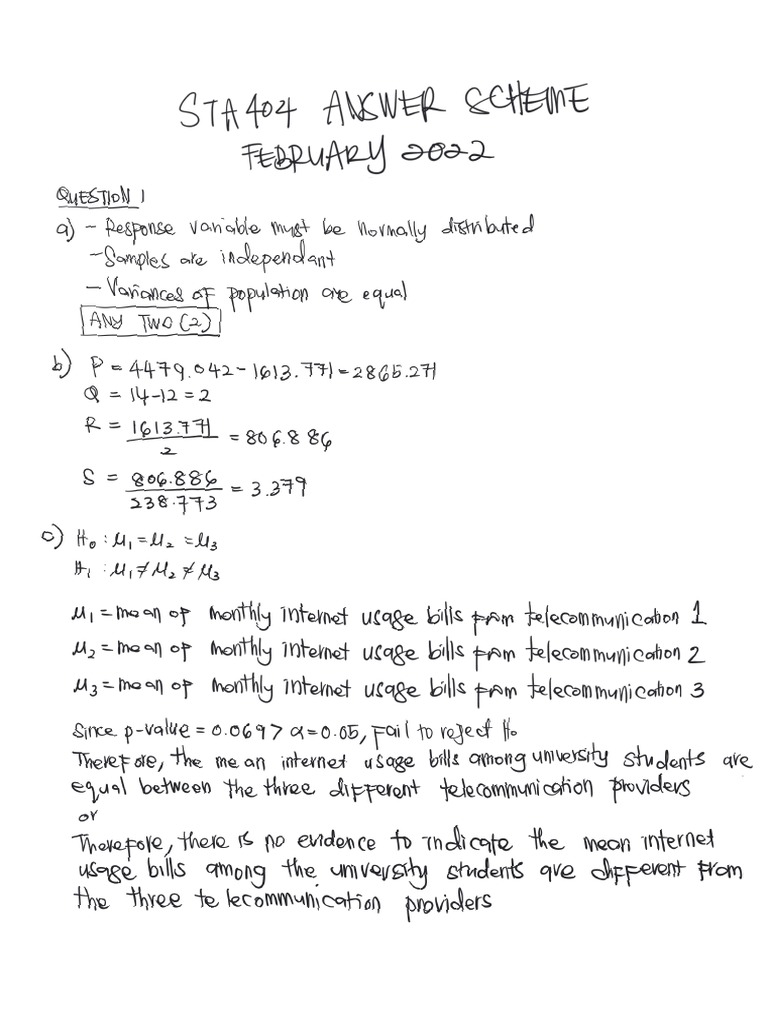 STA404 ANSWER SCHEME
FEBRUARY 2022
QUESTION 1
a) - Response variable must be normally distributed
- Samples are independant
- Variances of population are equal
ANY TWO (2)
b) P = 4479.042 - 1613.771 = 2865.271
Q = 14-12 = 2
R = 1613.771 / 2 = 806.886
S = 806.886 / 238.773 = 3.379
c) H₀ : μ₁ = μ₂ = μ₃
H₁ : μ₁ ≠ μ₂ ≠ μ₃
μ₁ = mean of monthly internet usage bills from telecommunication 1
μ₂ = mean of monthly internet usage bills from telecommunication 2
μ₃ = mean of monthly internet usage bills from telecommunication 3
Since p-value = 0.0697 > α = 0.05, Fail to reject H₀
Therefore, the mean internet usage bills among university students are
equal between the three different telecommunication providers
or
Therefore, there is no evidence to indicate the mean internet
usage bills among the university students are different from
the three telecommunication providers